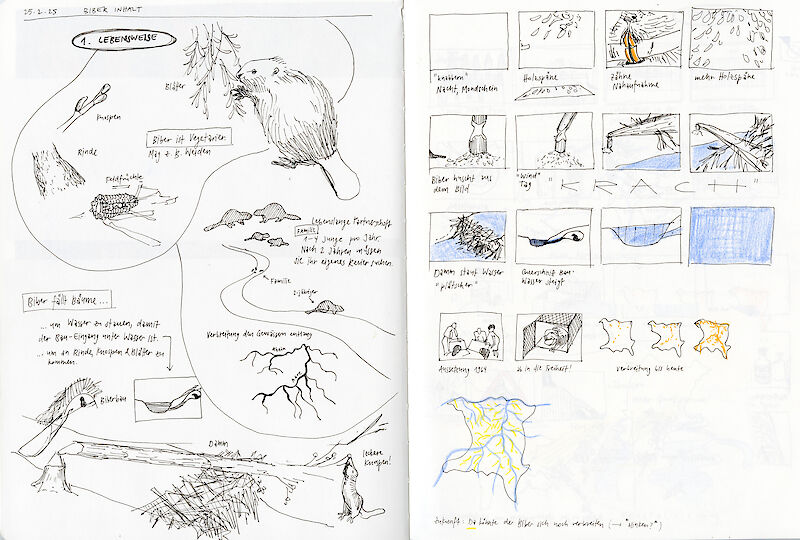 25.2.25 BIBER INHALT
1. LEBENSWEISE
Blätter
Knospen
Rinde
Biber ist Vegetarier.
Mag z.B. Weiden
Feldfrüchte
Lebenslange Partnerschaft
Familie
1-4 Junge pro Jahr.
Nach 2 Jahren müssen
sie ihr eigenes Revier suchen.
Familie
2-jährige
Verbreitung den Gewässern entlang
Biber fällt Bäume...
... um Wasser zu stauen, damit
der Bau-Eingang unter Wasser ist.
... um an Rinde, Knospen & Blätter zu
kommen.
Biberbau
Damm
leckere
Knospen!
"knabbern"
Nacht, Mondschein
Holzspäne
Zähne
Nahaufnahme
mehr Holzspäne
Biber huscht aus
dem Bild
"Wind"
Tag
"KRACH"
Damm staut Wasser
"plätschern"
Querschnitt Bau
Wasser steigt
Aussetzung
ab in die Freiheit!
Verbreitung bis heute
Zukunft: Da könnte der Biber sich noch verbreiten